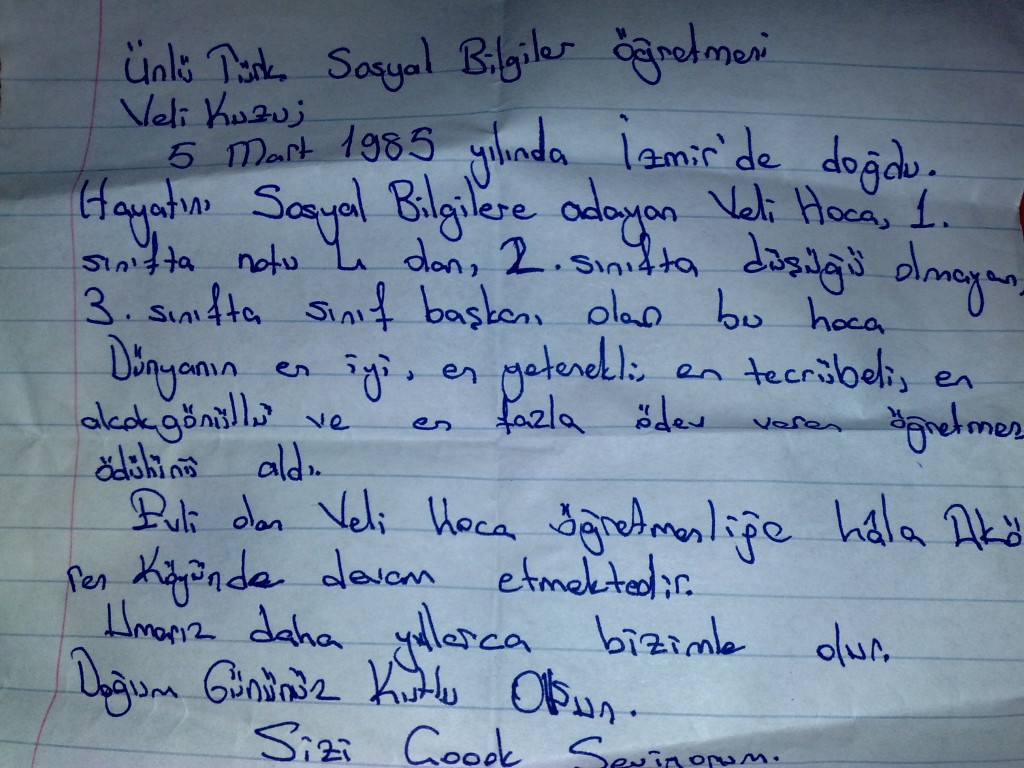 Ünlü Türk Sosyal Bilgiler öğretmeni
Veli Kuzu;
5 Mart 1985 yılında İzmir'de doğdu.
Hayatını Sosyal Bilgilere adayan Veli Hoca, 1.
sınıfta notu 4 dan, 2. sınıfta düşüğü olmayan,
3. sınıfta sınıf başkanı olan bu hoca
Dünyanın en iyi, en yetenekli, en tecrübeli, en
alçakgönüllü ve en fazla ödev veren öğretmen
ödülünü aldı.
Evli olan Veli Hoca öğretmenliğe hâla Akö
ren Köyünde devam etmektedir.
Umarız daha yıllarca bizimle olur.
Doğum Gününüz Kutlu Olsun.
Sizi Çoook Seviyorum.